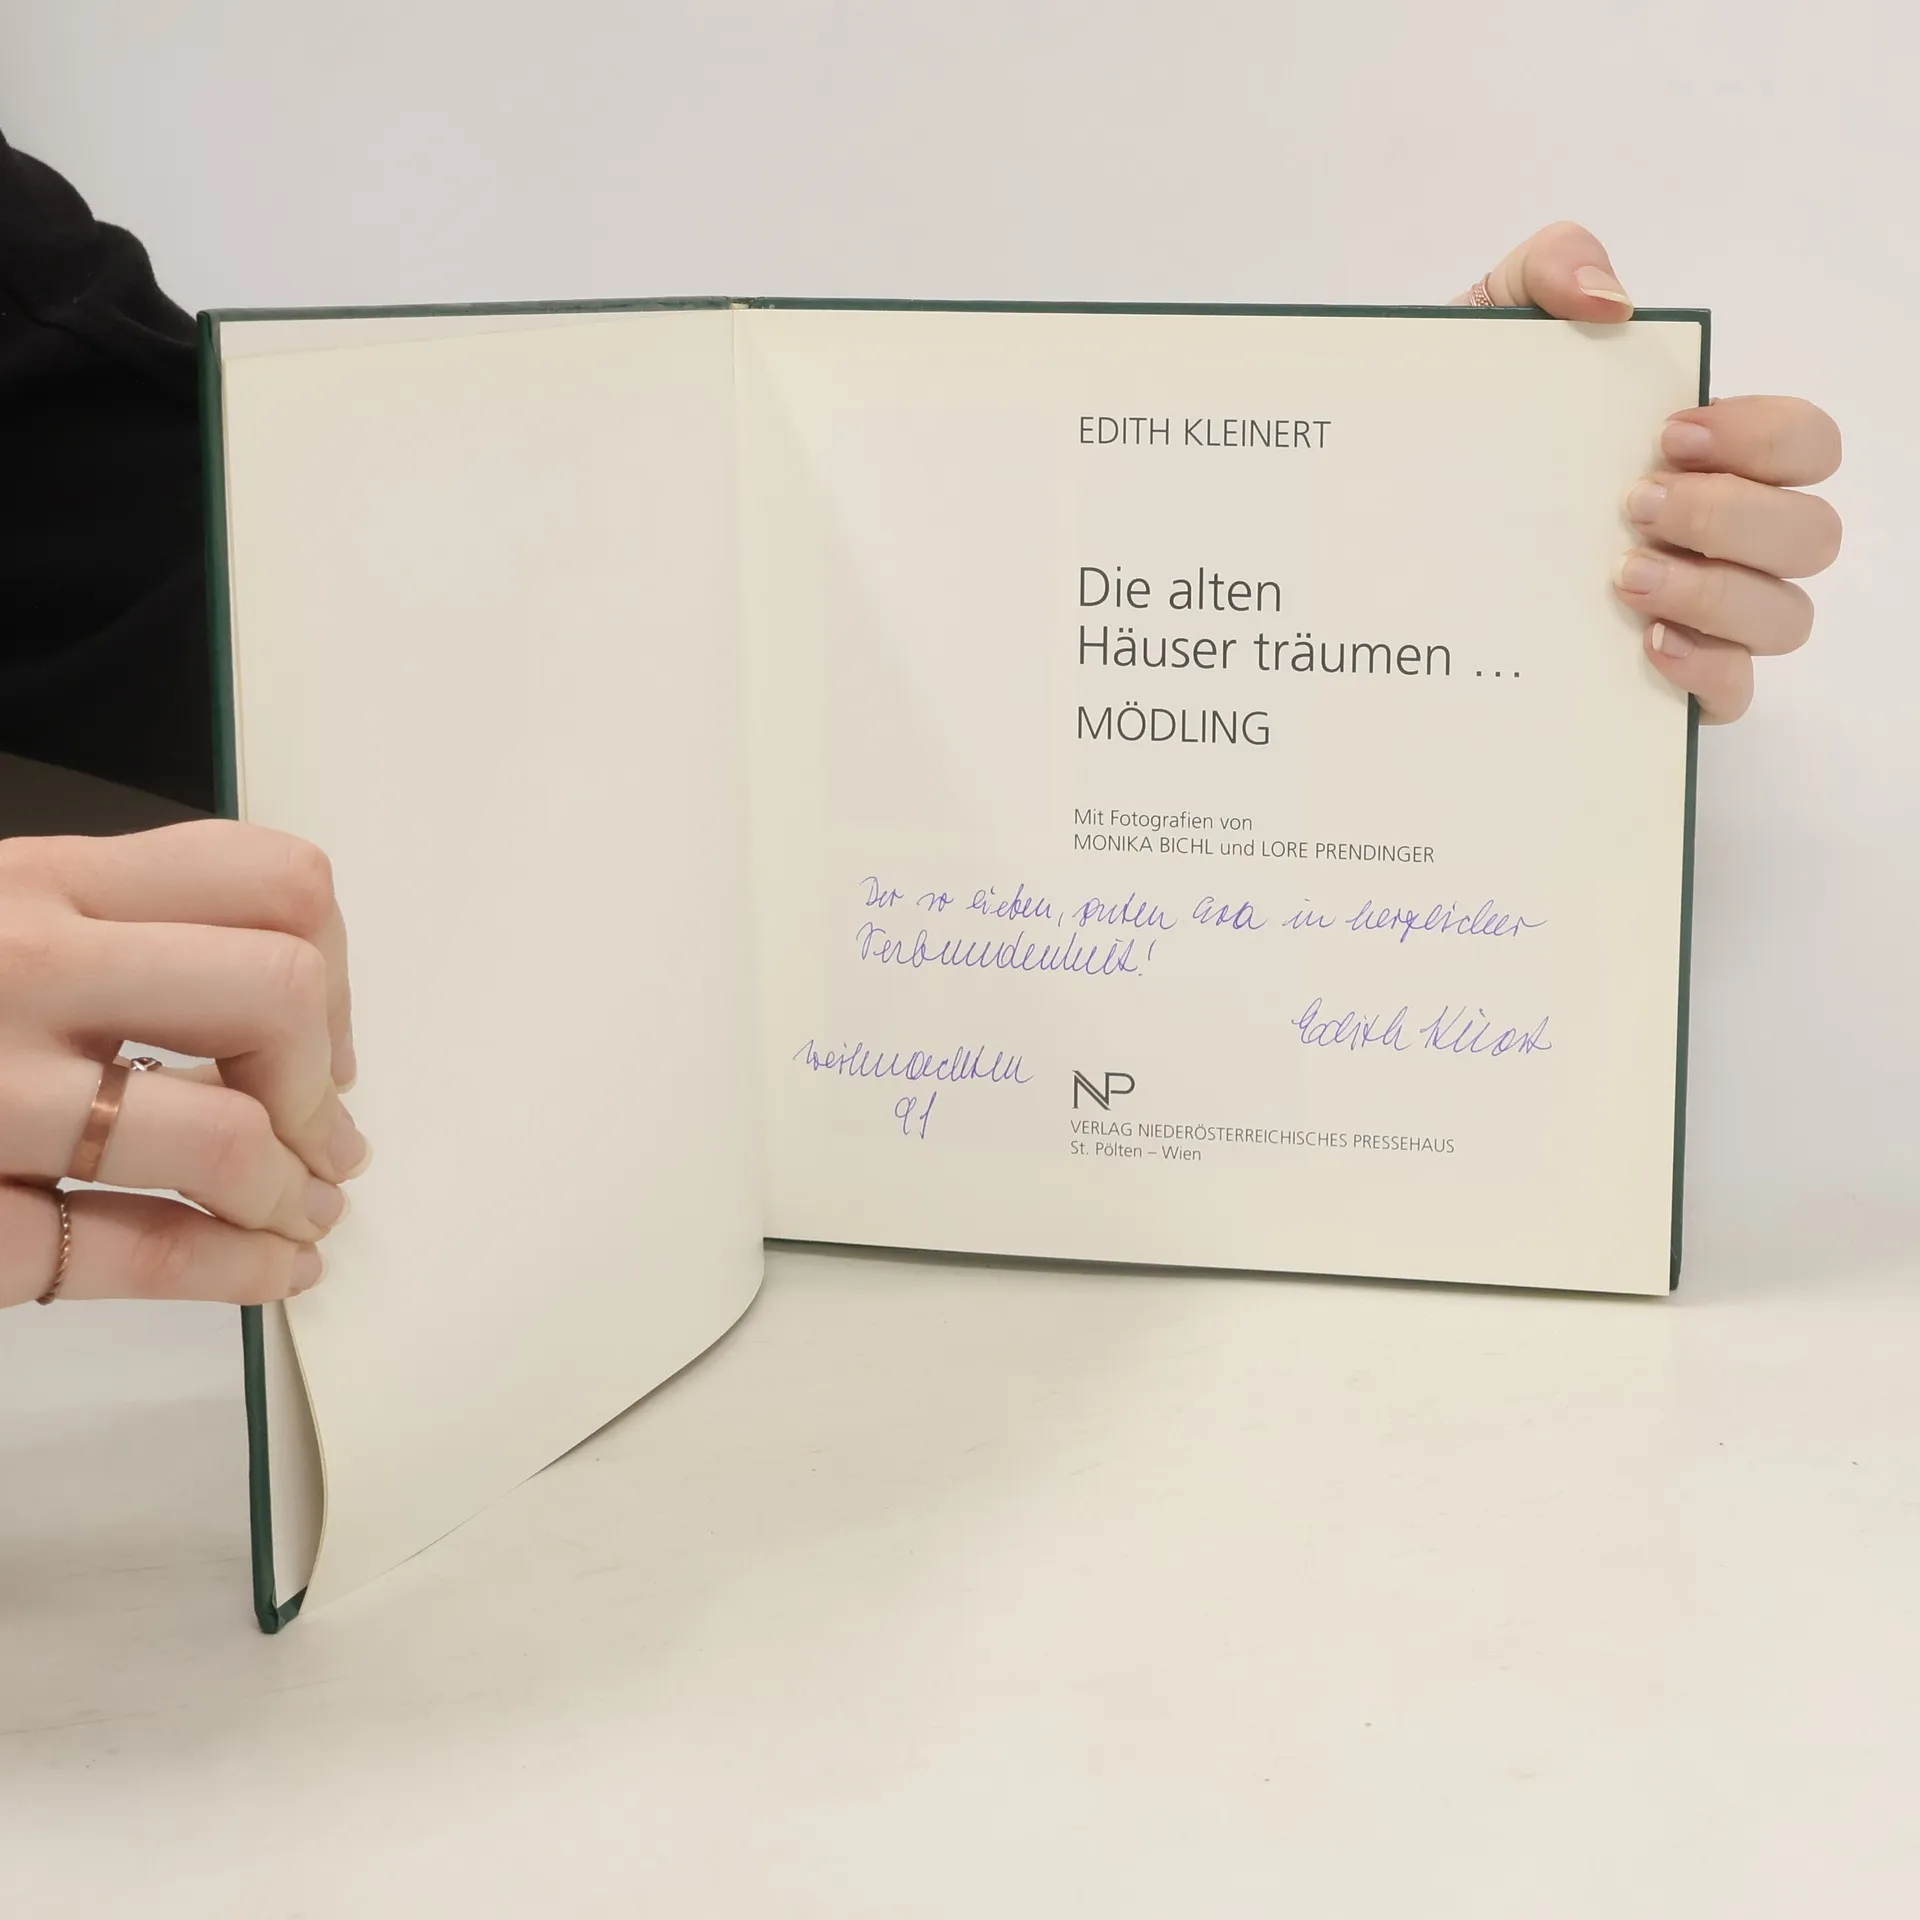 EDITH KLEINERT
Die alten
Häuser träumen ...
MÖDLING
Mit Fotografien von
MONIKA BICHL und LORE PRENDINGER
Der so lieben, guten in herzlicher
Verbundenheit!
Edith
Weihnachten
91
NP
VERLAG NIEDERÖSTERREICHISCHES PRESSEHAUS
St. Pölten – Wien